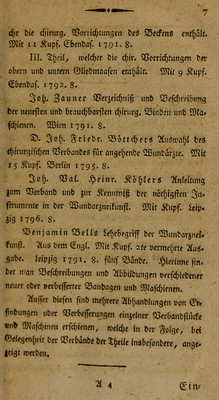 7
che die chirurg. Vorrichtungen des Beckens enthält.
Mit 11 Kupf. Ebendas. 1791. 8.
III. Theil, welcher die chir. Vorrichtungen der
obern und untern Gliedmaaßen enthält. Mit 9 Kupf.
Ebendas. 1792. 8.
Joh. Zauner Verzeichniß und Beschreibung
der neuesten und brauchbarsten chirurg. Binden und Ma-
schienen. Wien 1791. 8.
D. Joh. Friedr. Böttchers Auswahl des
chirurgischen Verbandes für angehende Wundärzte. Mit
15 Kupf. Berlin 1795. 8.
Joh. Val. Heinr. Köhlers Anleitung
zum Verband und zur Kenntniß der nöthigsten In-
strumente in der Wundarzneikunst. Mit Kupf. Leip-
zig 1796. 8.
Benjamin Bells Lehrbegriff der Wundarznei-
kunst. Aus dem Engl. Mit Kupf. 2te vermehrte Aus-
gabe. Leipzig 1791. 8. fünf Bände. Hierinne fin-
det man Beschreibungen und Abbildungen verschiedener
neuer oder verbesserter Bandagen und Maschienen.
Ausser diesen sind mehrere Abhandlungen von Er-
findungen oder Verbesserungen einzelner Verbandstücke
und Maschinen erschienen, welche in der Folge, bei
Gelegenheit der Verbände der Theile insbesondere, ange-
zeigt werden.
A 4 Ein-